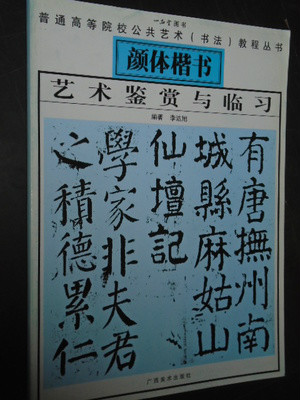 普通高等院校公共艺术(书法)教程丛书
颜体楷书
艺术鉴赏与临习
编著
有唐撫州南
城縣麻姑山
仙壇記
學家非夫君
之積德累仁
广西美术出版社